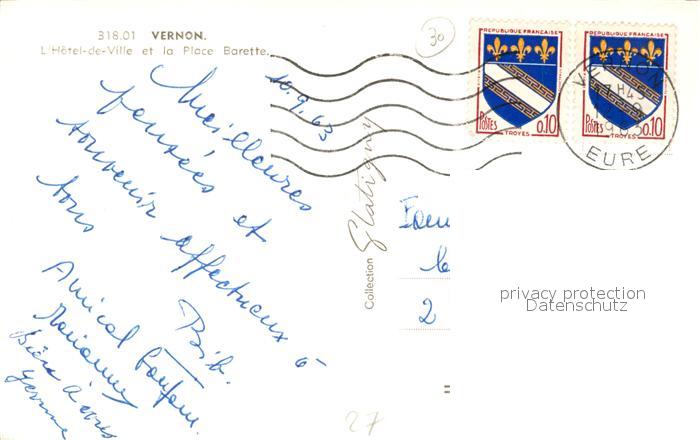 318.01 VERNON.
L'Hôtel-de-Ville et la Place Barette.
30
10.9.63
Meilleures
pensées et
souvenir affectueux à
tous
Bib.
Amical
Marianne
à vous
Yvonne
Collection
2
27
REPUBLIQUE FRANÇAISE
POSTES 0.10
TROYES
REPUBLIQUE FRANÇAISE
POSTES 0.10
TROYES
VERNON
17H45
1963
EURE
privacy protection
Datenschutz